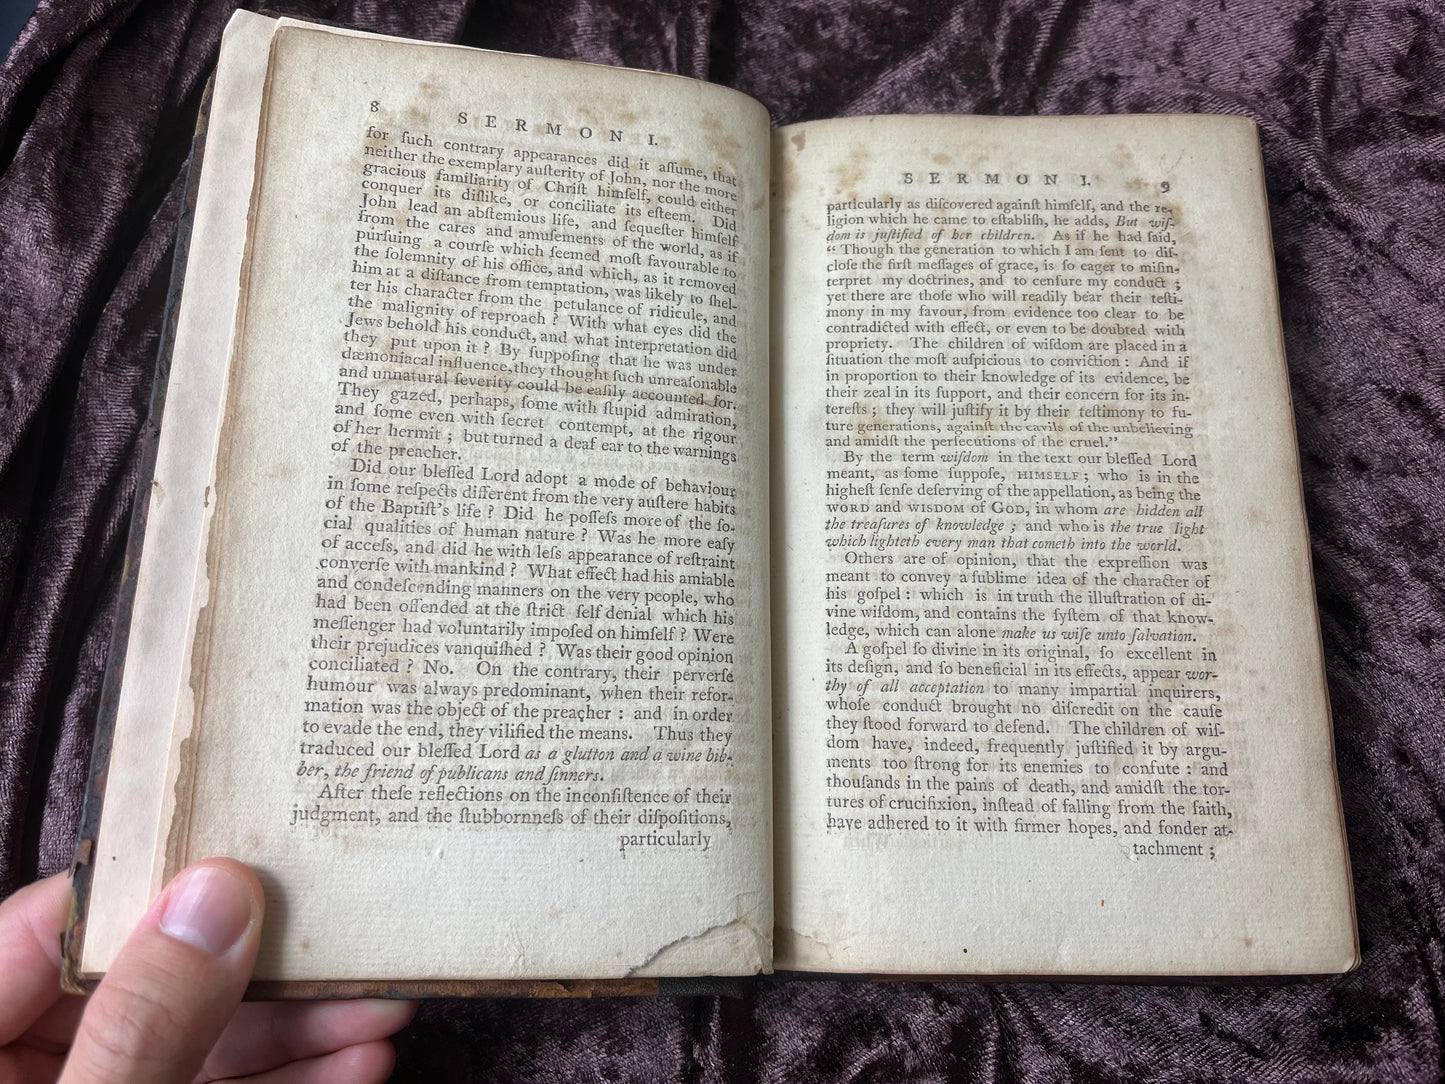 8
SERMON I.
for ſuch contrary appearances did it aſſume, that
neither the exemplary auſterity of John, nor the more
gracious familiarity of Chriſt himſelf, could either
conquer its diſlike, or conciliate its eſteem. Did
John lead an abſtemious life, and ſequeſter himſelf
from the cares and amuſements of the world, as if
purſuing a courſe which ſeemed moſt favourable to
the ſolemnity of his office, and which, as it removed
him at a diſtance from temptation, was likely to ſhel-
ter his character from the petulance of ridicule, and
the malignity of reproach ? With what eyes did the
Jews behold his conduct, and what interpretation did
they put upon it ? By ſuppoſing that he was under
dæmoniacal influence, they thought ſuch unreaſonable
and unnatural ſeverity could be eaſily accounted for.
They gazed, perhaps, ſome with ſtupid admiration,
and ſome even with ſecret contempt, at the rigour
of her hermit ; but turned a deaf ear to the warnings
of the preacher.
Did our bleſſed Lord adopt a mode of behaviour
in ſome reſpects different from the very auſtere habits
of the Baptiſt's life ? Did he poſſeſs more of the ſo-
cial qualities of human nature ? Was he more eaſy
of acceſs, and did he with leſs appearance of reſtraint
converſe with mankind ? What effect had his amiable
and condeſcending manners on the very people, who
had been offended at the ſtrict ſelf denial which his
meſſenger had voluntarily impoſed on himſelf ? Were
their prejudices vanquiſhed ? Was their good opinion
conciliated ? No. On the contrary, their perverſe
humour was always predominant, when their refor-
mation was the object of the preacher : and in order
to evade the end, they vilified the means. Thus they
traduced our bleſſed Lord as a glutton and a wine bib-
ber, the friend of publicans and ſinners.
After theſe reflections on the inconſiſtence of their
judgment, and the ſtubbornneſs of their diſpoſitions,
particularly
SERMON I. 9
particularly as diſcovered againſt himſelf, and the re-
ligion which he came to eſtabliſh, he adds, But wiſ-
dom is juſtified of her children. As if he had ſaid,
“ Though the generation to which I am ſent to diſ-
cloſe the firſt meſſages of grace, is ſo eager to miſin-
terpret my doctrines, and to cenſure my conduct ;
yet there are thoſe who will readily bear their teſti-
mony in my favour, from evidence too clear to be
contradicted with effect, or even to be doubted with
propriety. The children of wiſdom are placed in a
ſituation the moſt auſpicious to conviction : And if
in proportion to their knowledge of its evidence, be
their zeal in its ſupport, and their concern for its in-
tereſts ; they will juſtify it by their teſtimony to fu-
ture generations, againſt the cavils of the unbelieving
and amidſt the perſecutions of the cruel.”
By the term wiſdom in the text our bleſſed Lord
meant, as ſome ſuppoſe, HIMSELF ; who is in the
higheſt ſenſe deſerving of the appellation, as being the
WORD and WISDOM of GOD, in whom are hidden all
the treaſures of knowledge ; and who is the true light
which lighteth every man that cometh into the world.
Others are of opinion, that the expreſſion was
meant to convey a ſublime idea of the character of
his goſpel : which is in truth the illuſtration of di-
vine wiſdom, and contains the ſyſtem of that know-
ledge, which can alone make us wiſe unto ſalvation.
A goſpel ſo divine in its original, ſo excellent in
its deſign, and ſo beneficial in its effects, appear wor-
thy of all acceptation to many impartial inquirers,
whoſe conduct brought no diſcredit on the cauſe
they ſtood forward to defend. The children of wiſ-
dom have, indeed, frequently juſtified it by argu-
ments too ſtrong for its enemies to confute : and
thouſands in the pains of death, and amidſt the tor-
tures of crucifixion, inſtead of falling from the faith,
have adhered to it with firmer hopes, and fonder at-
tachment ;